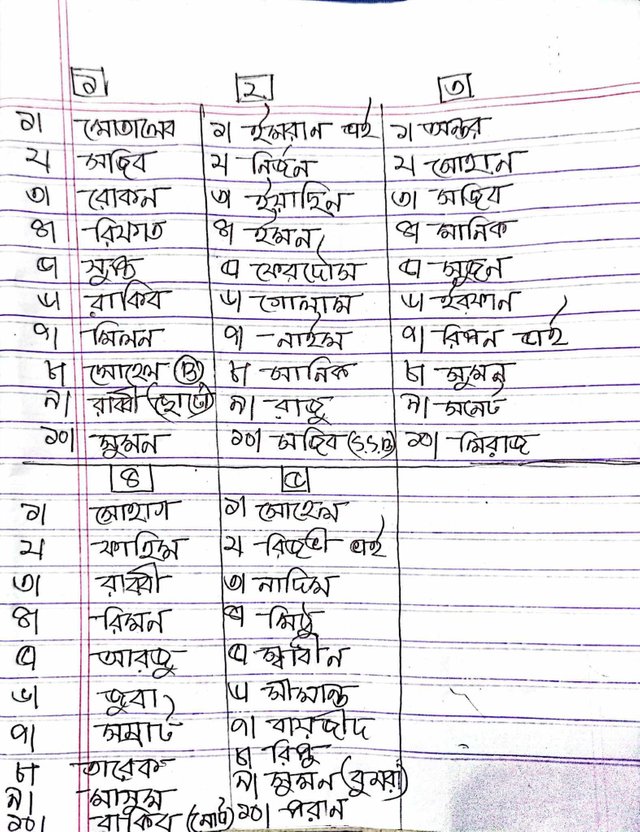 ১ ২ ৩
১। মোতালেব ১। ইমরান ভাই ১। অন্তর
২। সজিব ২। নির্জন ২। সোহান
৩। রোকন ৩। ইয়াছিন ৩। সজিব
৪। রিফাত ৪। ইমন ৪। মানিক
৫। ৫। ফেরদৌস ৫। সুজন
৬। রাকিব ৬। গোলাম ৬। ইরফান
৭। মিলন ৭। নাইম ৭। রিপন ভাই
৮। সোহেল (B) ৮। মানিক ৮। সুমন
৯। রাব্বী (ছোট) ৯। রাজু ৯। সনেট
১০। সুমন ১০। সজিব (S.S.B) ১০। মিরাজ
৪ ৫
১। সোহাগ ১। সোহেল
২। ফাহিম ২। রিজভী ভাই
৩। রাব্বী ৩। নাদিম
৪। রিমন ৪। মিঠু
৫। আরজু ৫। স্বাধীন
৬। জুবা ৬। সীমান্ত
৭। সম্রাট ৭। বায়জীদ
৮। তারেক ৮। রিপু
৯। মাসুম ৯। সুমন (কুমরা)
১০। রাকিব (মোট) ১০। পরান